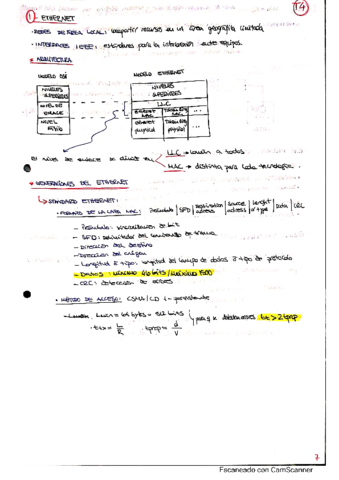 T4
1- ETHERNET
·REDES DE ÁREA LOCAL: compartir recursos en un área geográfica limitada
·INTERFACES IEEE: estándares para la interconexión entre equipos.
* ARQUITECTURA
MODELO OSI MODELO ETHERNET
NIVELES SUPERIORES NIVELES SUPERIORES
NIVEL DE ENLACE LLC
ETHERNET MAC TOKEN RING MAC ...
NIVEL FÍSICO ETHERNET physical TOKEN RING physical ...
El nivel de enlace se divide en LLC → común a todos.
MAC → distinta para cada tecnología.
* GENERACIONES DEL ETHERNET
↳ STANDARD ETHERNET:
· FORMATO DE LA CAPA MAC: Preámbulo | SFD | Destination address | Source address | Length or type | Data | CRC
- Preámbulo: sincronización de bit
- SFD: delimitador del comienzo de trama
- Dirección del destino
- Dirección del origen
- Longitud o tipo: longitud del campo de datos o tipo de protocolo
- DATOS: MÍNIMO 46 bits / MÁXIMO 1500
- CRC: detección de errores
· MÉTODO DE ACCESO: CSMA/CD 1-persistente
Lmin = 64 bytes = 512 bits para q
tt > 2 tprop
· ttx = L/R tprop = d/v
7
Escaneado con CamScanner